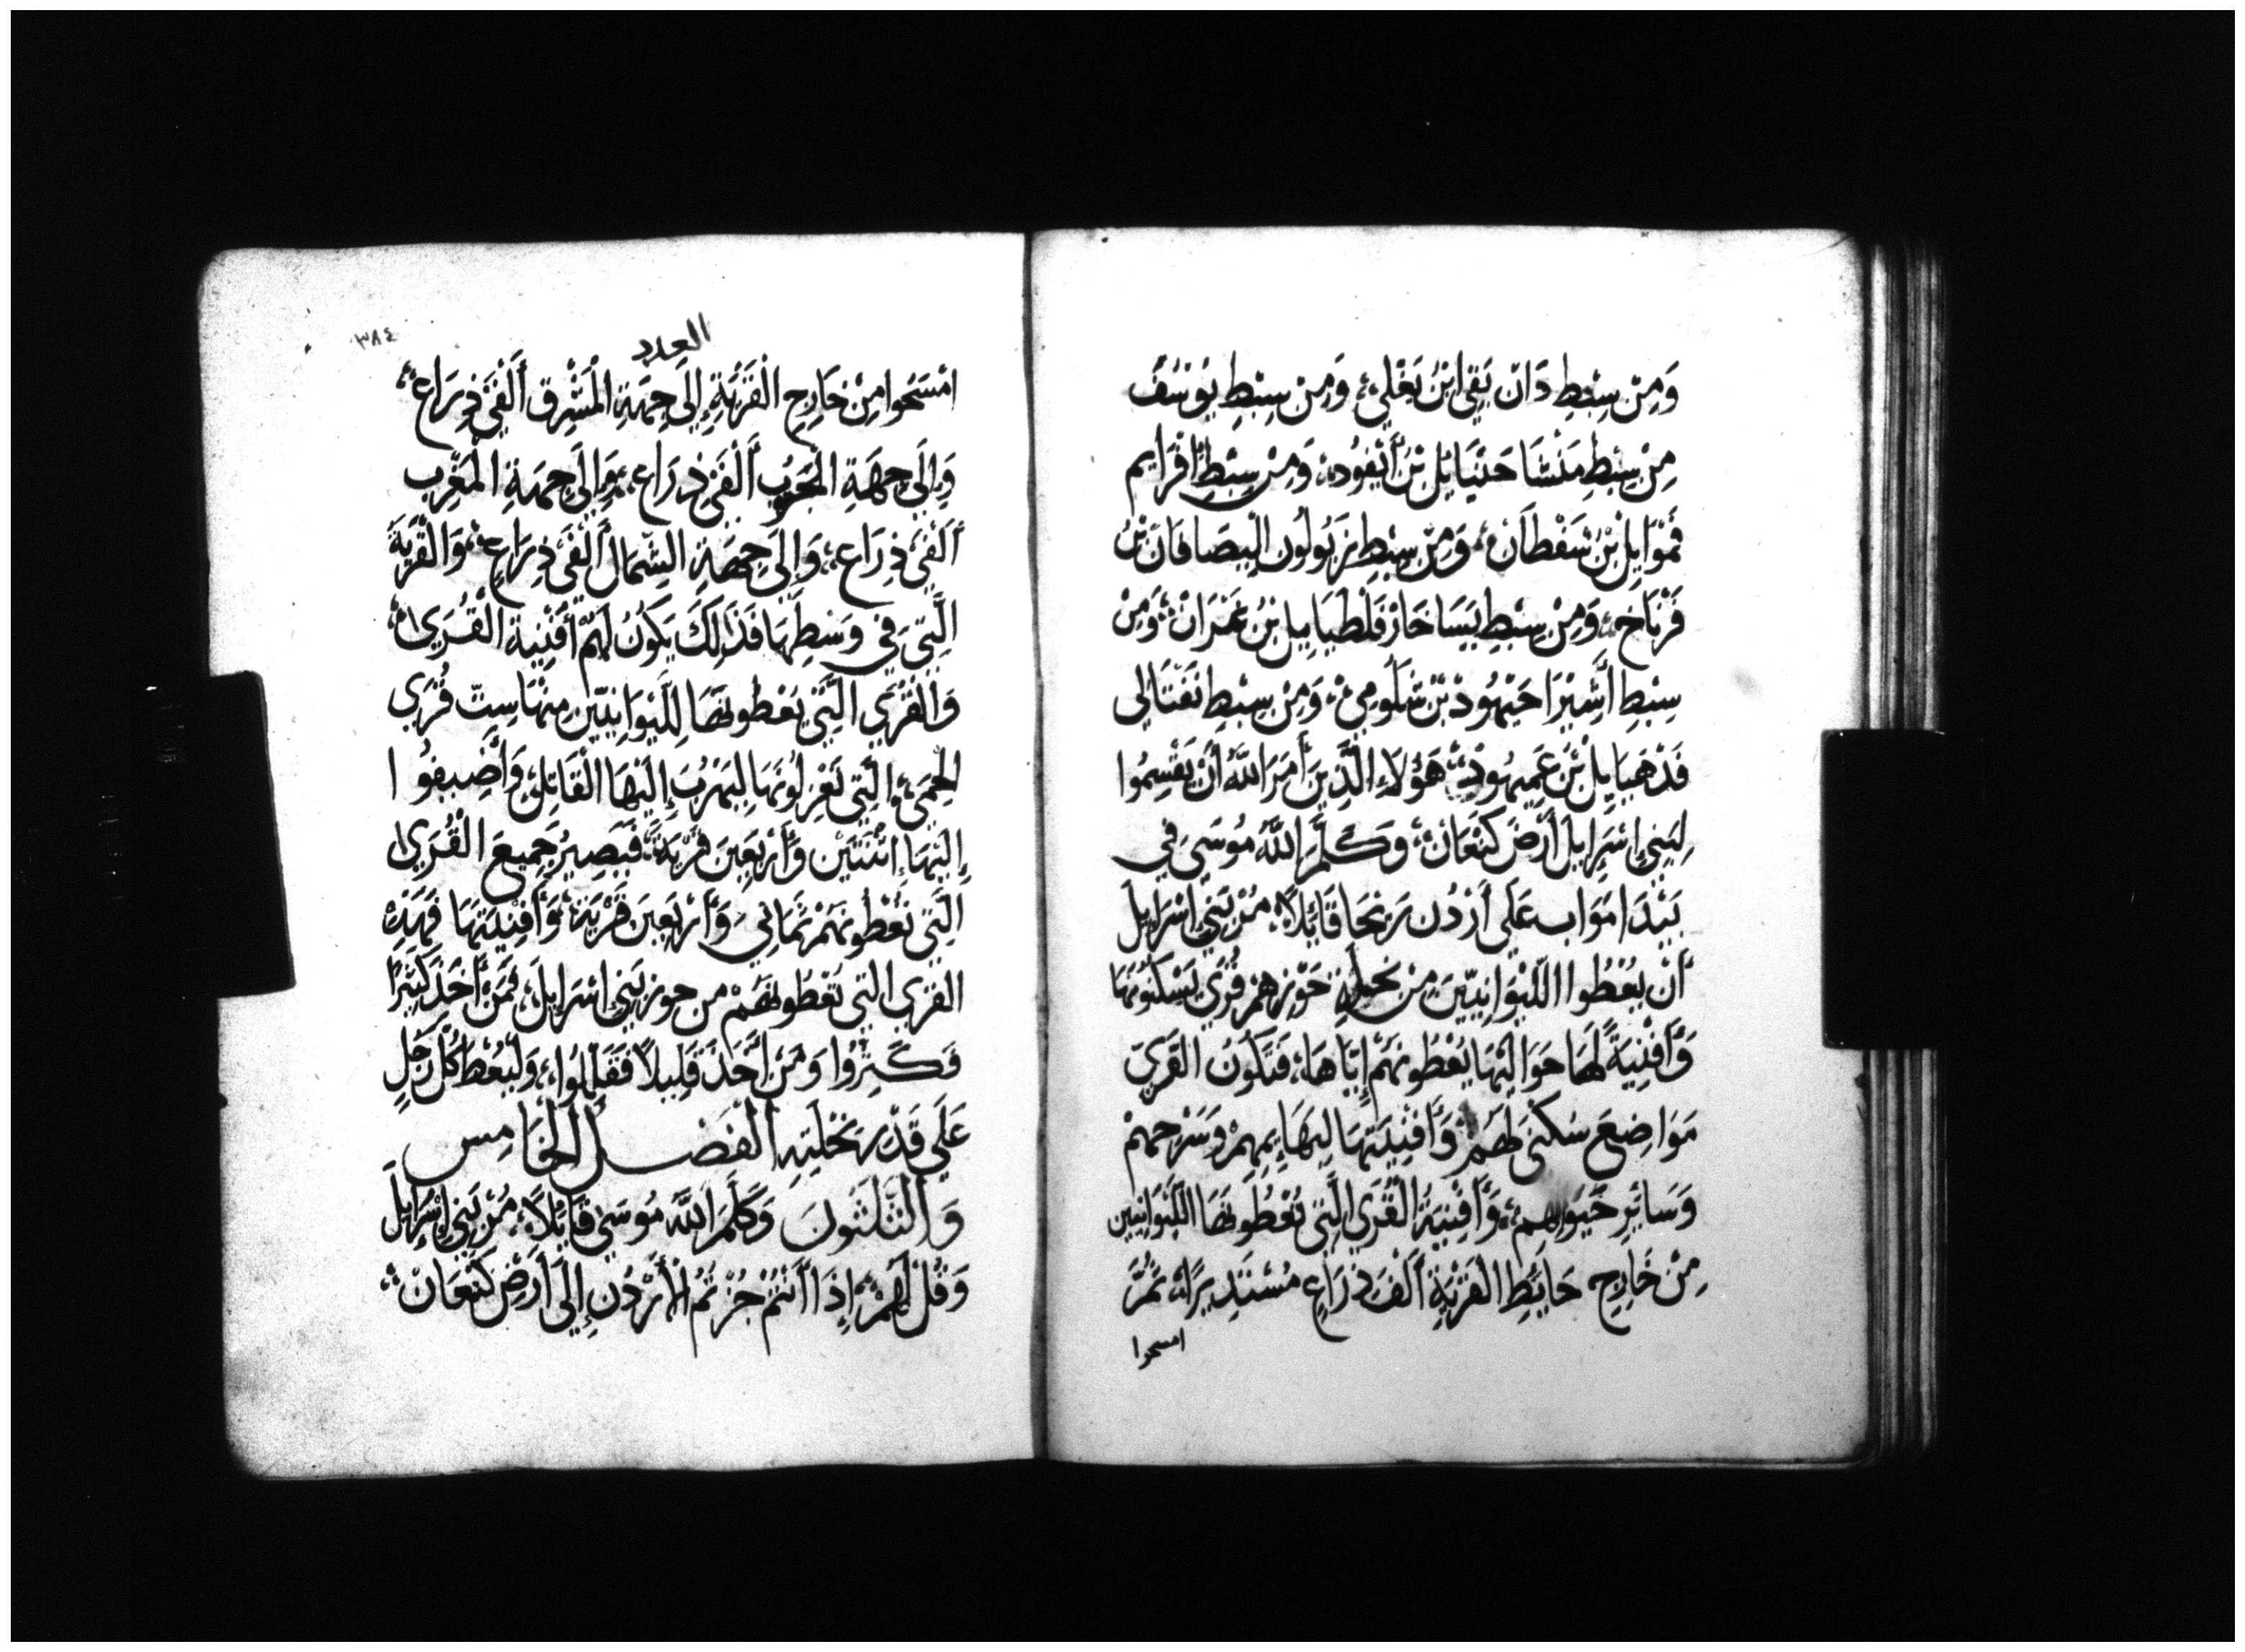 وَمِنْ سِبْطِ دَانَ بَقِي ابْنُ يَغْلِي، وَمِنْ سِبْطِ يُوسُفَ
مِنْ سِبْطِ مَنَشَّا حَنْيَايِلُ بْنُ أَيْفُودَ، وَمِنْ سِبْطِ أَفْرَايِم
قَمْوَايِلُ بْنُ شَفْطَانَ، وَمِنْ سِبْطِ زَبُولُون الْيِصَافَانَ بْنُ
فَرْنَاخ، وَمِنْ سِبْطِ يَسَاخَارَ فَلْطِيَايِيلَ بْنُ عَمْرَانَ، وَمِنْ
سِبْطِ أَشِيرَ احَيْهُودْ بْنُ شَلُومِي، وَمِنْ سِبْطِ نَفْتَالِي
فَدْهَيَايِلُ بْنُ عَمِيهُودَ، هَؤُلَاءِ الَّذِينَ أَمَرَ اللَّهُ أَنْ يَقْسِمُوا
لِبَنِي إِسْرَايِلَ أَرْضَ كَنْعَانَ، وَكَلَّمَ اللَّهُ مُوسَى فِي
بَيْدَا مَوَاب عَلَى أَرْدُن رِيحَا قَائِلًا، مُرْ بَنِي اسْرَايِلَ
أَنْ يُعْطُوا اللَّيْوَانِيِّينَ مِنْ نِحْلَةِ حَوْزِهِمْ قُرًى يَسْكُنُونَهَا
وَأَفْنِيَةً لَهَا حَوَالَيْهَا يُعْطُونَهُمْ إِيَّاهَا، فَتَكُونُ الْقُرَى
مَوَاضِعَ سُكْنَى لَهُمْ وَأَفْنِيَتُهَا لِبَهَايِمِهِمْ وَسَرْحِهِمْ
وَسَائِرِ حَيَوَانِهِمْ، وَأَفْنِيَةُ الْقُرَى الَّتِي تُعْطُونَهَا اللَّيْوَانِيِّين
مِنْ خَارِجِ حَايِطِ الْقَرْيَةِ أَلْفَ ذِرَاعٍ مُسْتَدِيرًا، ثُمَّ
امسحوا
العدد
٣٨٤
امْسَحُوا مِنْ خَارِجِ الْقَرْيَةِ إِلَى جِهَةِ الْمَشْرِقِ أَلْفَيْ ذِرَاعٍ،
وَإِلَى جِهَةِ الْجَنُوبِ أَلْفَيْ ذِرَاعٍ، وَإِلَى جِهَةِ الْمَغْرِب
أَلْفَيْ ذِرَاعٍ، وَإِلَى جِهَةِ الشِّمَالِ أَلْفَيْ ذِرَاعٍ، وَالْقَرْيَةُ
الَّتِي فِي وَسَطِهَا فَذَلِكَ يَكُونُ لَهُمْ أَفْنِيَةَ الْقُرَى،
وَالْقُرَى الَّتِي تُعْطُونَهَا لِلَّيْوَانِيِّينَ مِنْهَا سِتّ قُرَى
الْحِمَى، الَّتِي تَعْزِلُونَهَا لِيَهْرُبَ إِلَيْهَا الْقَاتِلُ، وَأَضِيفُوا
إِلَيْهَا اثْنَتَيْنِ وَأَرْبَعِينَ قَرْيَةً، فَيَصِيرُ جَمِيعَ الْقُرَى
الَّتِي تُعْطُونَهُمْ ثَمَانِي وَأَرْبَعِينَ قَرْيَةً، وَأَفْنِيَتُهَا فَهَذِهِ
الْقُرَى الَّتِي تُعْطُونَهُمْ مِنْ حَوْزِ بَنِي اسْرَايِلَ، فَمَنْ أَخَذَ كَثِيرًا
فَكَثِّرُوا وَمَنْ أَخَذَ قَلِيلًا فَقَلِّلُوا، وَلْيُعْطَ كُلُّ رَجُلٍ
عَلَى قَدْرِ نِحْلَتِهِ الْفَصْلُ الْخَامِس
وَالثَّلَثُونَ وَكَلَّمَ اللَّهُ مُوسَى قَائِلًا، مُرْ بَنِي إِسْرَايِلَ
وَقُلْ لَهُمْ، إِذَا أَنْتُمْ جُزْتُمُ الْأُرْدُنَ إِلَى أَرْضِ كَنْعَانَ،